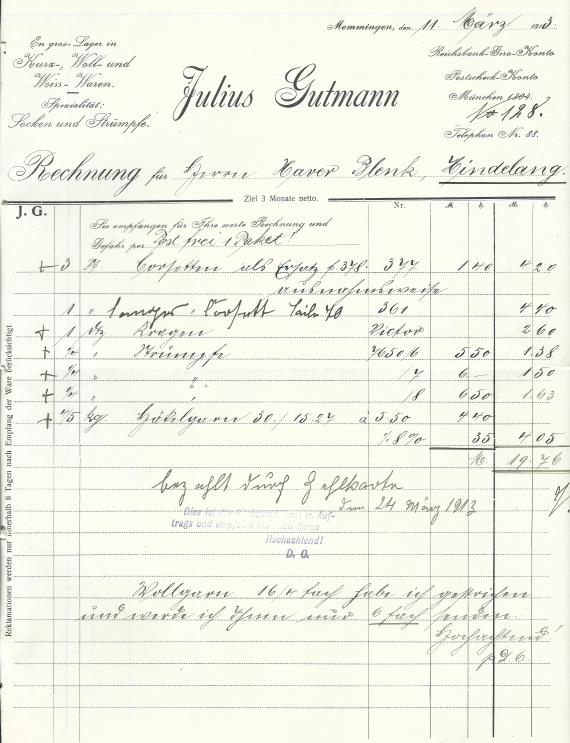 Memmingen, den 11. März 1913.
En gros-Lager in
Kurz-, Woll- und
Weiss-Waren.
Spezialität:
Socken und Strümpfe.
Julius Gutmann
Reichsbank-Giro-Konto
Postscheck-Konto
München 1204.
No 128.
Telephon Nr. 88.
Rechnung für Herrn Xaver Blenk, Hindelang.
Ziel 3 Monate netto.
J. G. Nr. M. ₰ M. ₰
Sie empfangen für Ihre werte Rechnung und
Gefahr per Post frei 1 Paket!
3 Corsetten als Ersatz f. 378. 377 1 40 4 20
ausnahmsweise
1 " Corsett Taile 70 361 4 40
1 Dtz Kragen Victor 2 60
" Strümpfe 7650/6 5 50 1.38
" " 17 6.— 1 50
" " 18 6 50 1.63
4/5 kg. Häkelgarn 30/15.27 à 5.50 4 40
% 8% 35 4 05
M. 19.76
bezahlt durch Zahlkarte
den 24 März 1913
Hochachtend!
D. O.
Wollgarn 16/4 fach habe ich gestrichen
und werde ich Ihnen nur 6 fach senden.
Hochachtend!
Reklamationen werden nur innerhalb 8 Tagen nach Empfang der Ware berücksichtigt.